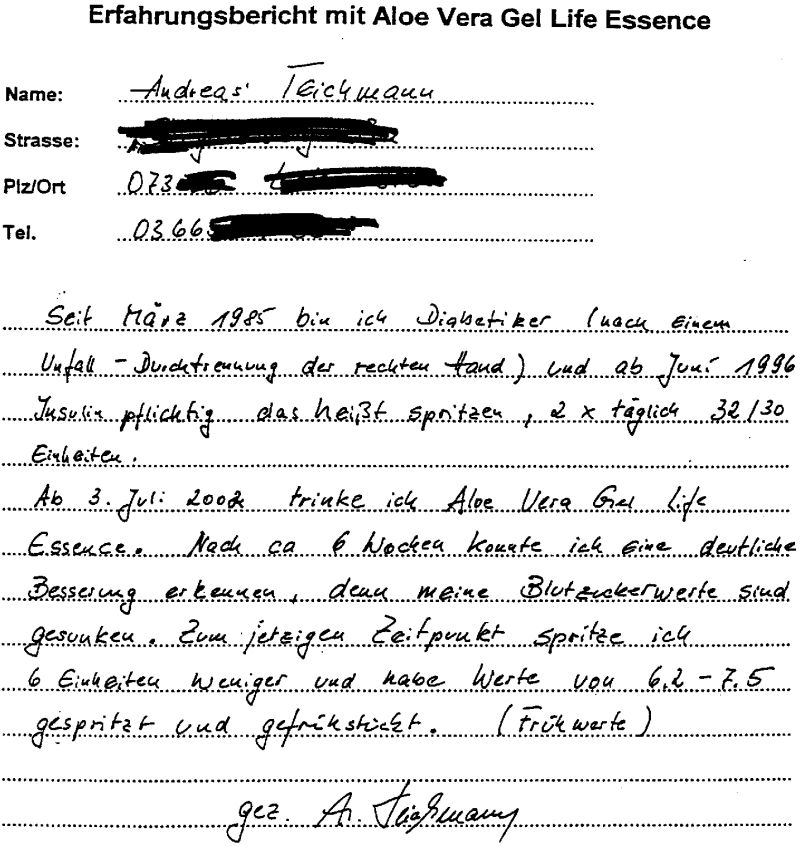 Erfahrungsbericht mit Aloe Vera Gel Life Essence
Name: Andreas Teichmann
Strasse:
Plz/Ort 073
Tel. 0366
Seit März 1985 bin ich Diabetiker (nach einem
Unfall - Durchtrennung der rechten Hand) und ab Juni 1996
Insulin pflichtig das heißt spritzen, 2 x täglich 32/30
Einheiten.
Ab 3. Juli 2002 trinke ich Aloe Vera Gel Life
Essence. Nach ca 6 Wochen konnte ich eine deutliche
Besserung erkennen, denn meine Blutzuckerwerte sind
gesunken. Zum jetzigen Zeitpunkt spritze ich
6 Einheiten weniger und habe Werte von 6.2 - 7.5
gespritzt und gefrühstückt. (Frühwerte)
gez. A. Teichmann